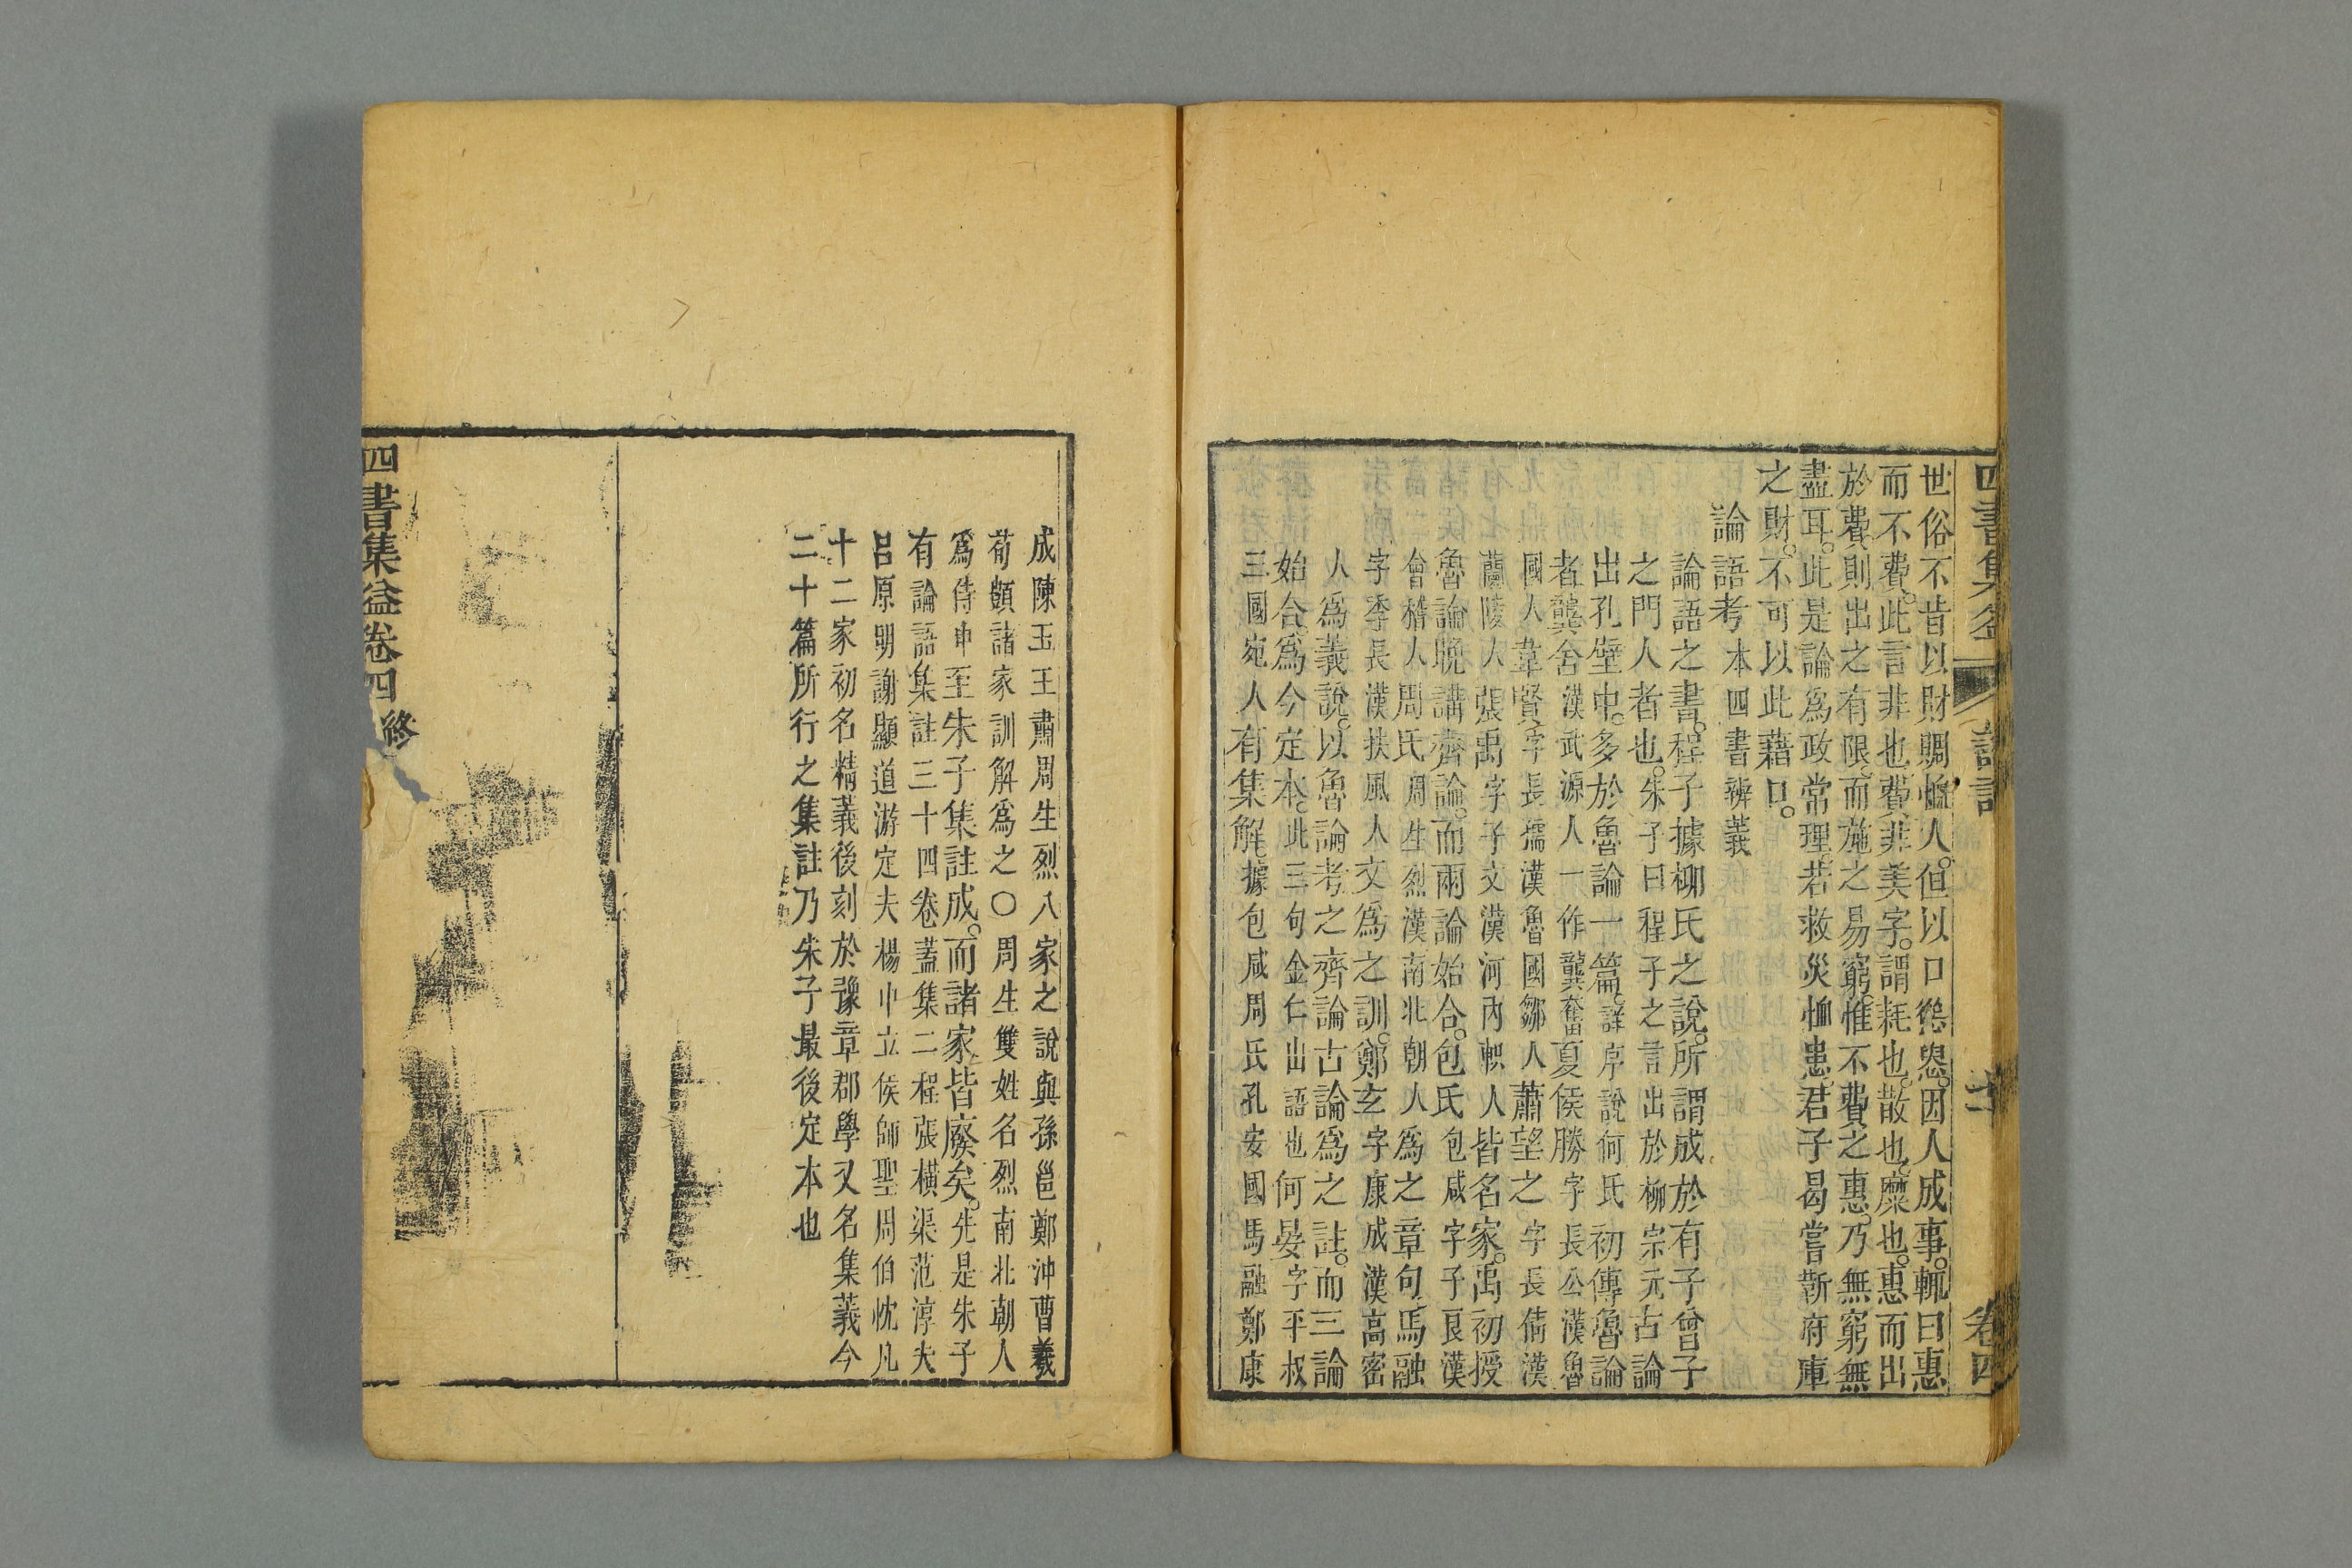 世俗不昔以財賜恤人。但以口慫恿。因人成事。輒曰惠
而不費。此言非也。費非美字。謂耗也。散也。糜也。惠而出
於費。則出之有限。而施之易窮。惟不費之惠。乃無窮無
盡耳。此是論爲政常理。若救災恤患。君子曷嘗靳府庫
之財。不可以此藉口。
論語考 本四書辨義
論語之書。程子據柳氏之說。所謂成於有子曾子
之門人者也。朱子曰程子之言出於柳宗元古論
出孔壁中。多於魯論一篇。詳序說何氏初傳魯論
者龔舍漢武源人一作龔奮夏侯勝字長公漢魯
國人韋賢字長孺漢魯國鄒人蕭望之字長倩漢
蘭陵人張禹字子文漢河內軹人皆名家。禹初授
魯論晚講齊論。而兩論始合。包氏包咸字子良漢
會稽人周氏周生烈漢南北朝人爲之章句。馬融
字季長漢扶風人又爲之訓。鄭玄字康成漢高密
人爲義說。以魯論考之齊論古論爲之註。而三論
始合。爲今定本。此三句金仁出語也何晏字平叔
三國宛人有集解。據包咸周氏孔安國馬融鄭康
四書集益
論語
卷四
成陳玉王肅周生烈八家之說與孫邕鄭沖曹羲
荀顗諸家訓解爲之○周生雙姓名烈南北朝人
爲侍中至朱子集註成。而諸家皆廢矣。先是朱子
有論語集註三十四卷蓋集二程張橫渠范淳夫
呂原明謝顯道游定夫楊中立侯師聖周伯忱凡
十二家初名精義後刻於豫章郡學又名集義今
二十篇所行之集註乃朱子最後定本也
四書集益卷四終